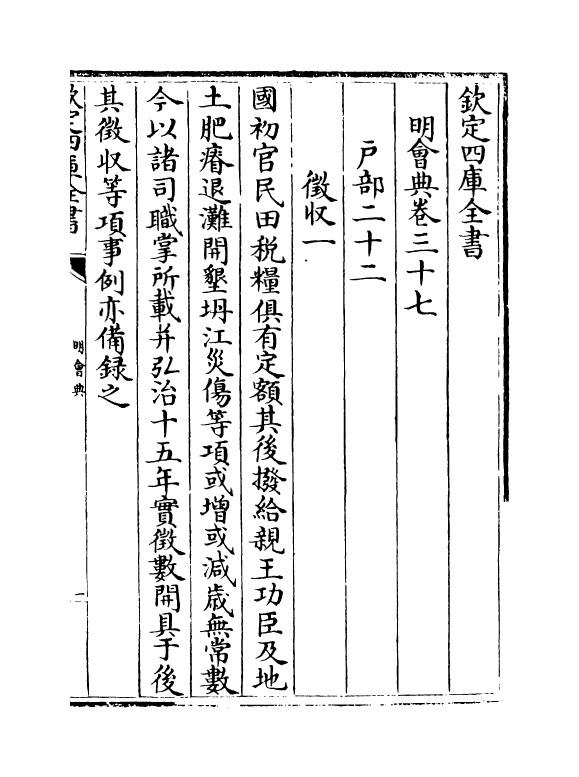 欽定四庫全書
明會典卷三十七
戶部二十二
徵收一
國初官民田稅糧俱有定額其後撥給親王功臣及地
土肥瘠退灘開墾坍江災傷等項或增或減歲無常數
今以諸司職掌所載并弘治十五年實徵數開具于後
其徵收等項事例亦備録之
欽定四庫全書
明會典
一